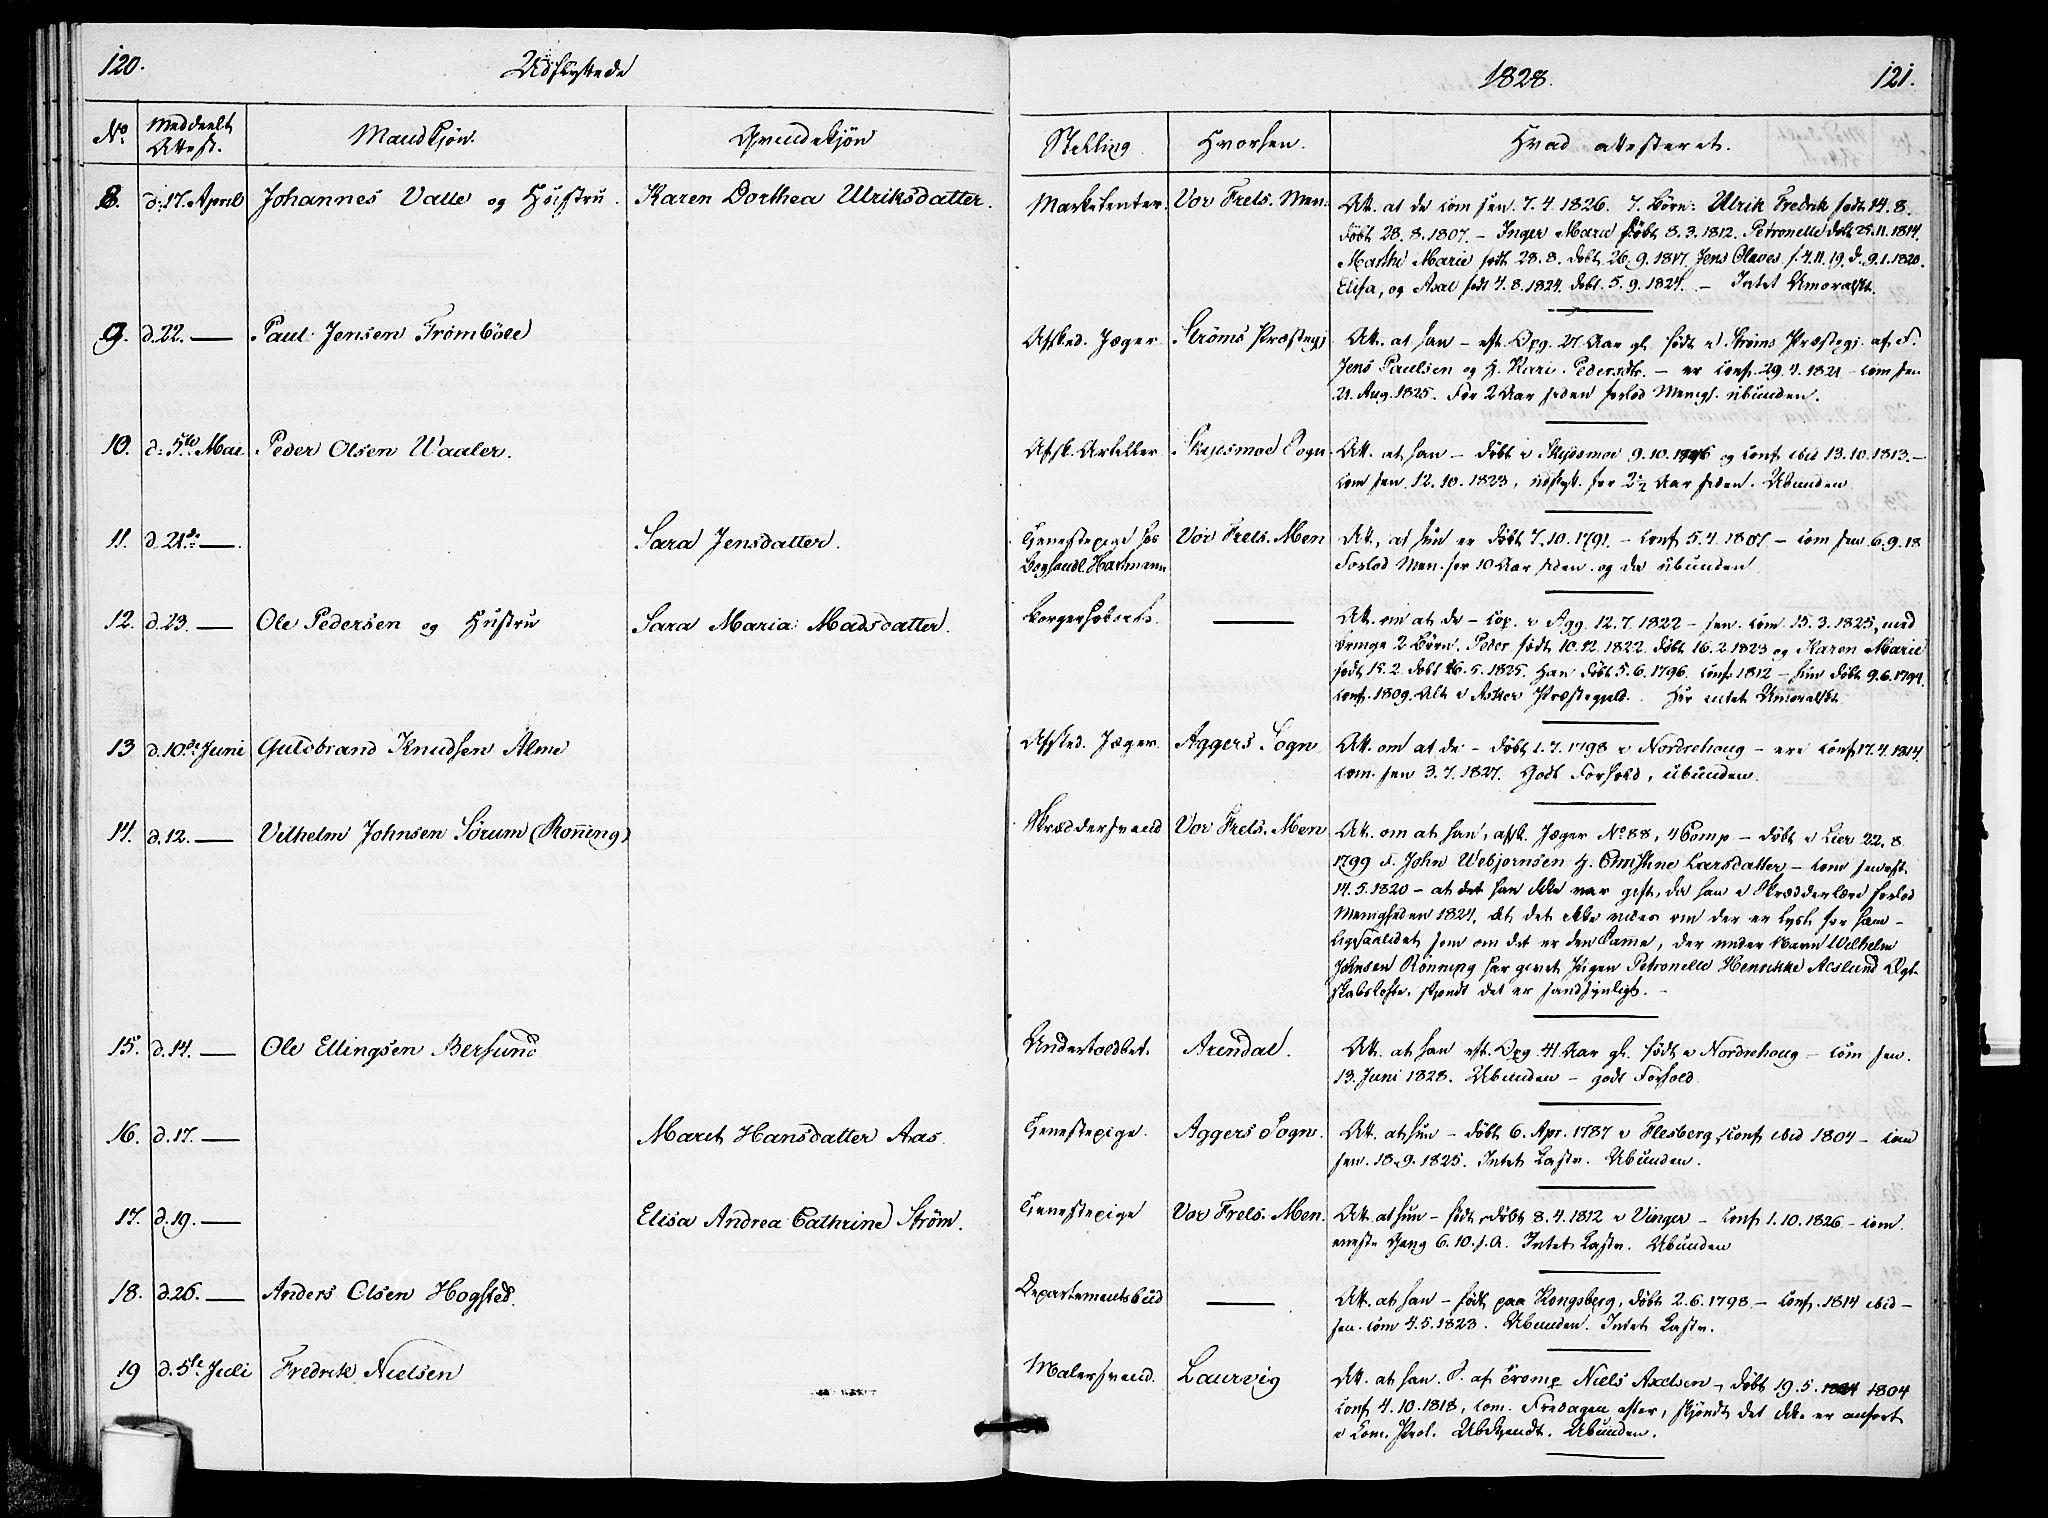 120. Udflyttede
1828. 121.
No Meddeelt Attest. Mandkjøn. Qvindekjøn Stilling Hvorhen. Hvad attesteret.
8. d. 17. April Johannes Valle og Hustru. Karen Dorthea Ulriksdatter. Marketenter. Vor Frels. Men. Att. at de com sen. 7. 4. 1826. 7. Børn: Ulrik Fredrik født 14. 8.
døbt 28. 8. 1807. – Inger Marie døbt 8. 3. 1812. Petronelle døbt 25. 11. 1814.
Marthe Marie født 28. 8. døbt. 26. 9. 1817, Jens Olaves f. 4. 11. 19. d. 9. 1. 1820.
Elisa, og Axel født 4. 8. 1824. døbt. 5. 9. 1824. – Intet Umoralskt.
9. d. 22. — Paul Jensen Trømböle Afsked. Jæger Strøms Præstegj Att. at han – eft. Opg. 27 Aar gl. født i Strøms Præstegj. af F.
Jens Paulsen og H. Kari Pedersdtr. – er Conf. 29. 4. 1821 – com sen
21. Aug. 1825. For 2 Aar siden forlod Menigh. ubunden.
10. d. 5te Mai Peder Olsen Waaler. Afsk. Artiller Skydsmoe Sogn Att. at han – døbt i Skydsmoe 9. 10. 1796 og Conf ibid 13. 10. 1813. –
com sen. 12. 10. 1823, udflyt. for 2½ Aar siden. Ubunden
11. d. 21de — Sara Jensdatter. Tjenestepige hos Vor Frels. Men Att. at hun er døbt 7. 10. 1791. – Conf 5. 4. 1807 – com sen 6. 9. 18
Boghandl. Hartmann Forlod Men. for 10 Aar siden og da ubunden
12. d. 23. — Ole Pedersen og Hustru Sara Maria Madsdatter. Borgersoberts. — Att. om at de – cop. i Agg. 12. 7. 1822 – sen. com. 15. 3. 1825, med
bringe 2 Børn. Peder født 10. 12. 1822. døbt 16. 2. 1823 og Karen Marie
født 15. 2. døbt 26. 5. 1825. Han døbt 5. 6. 1796. Conf 1812 – hun døbt 9. 6. 1794.
Conf. 1809. Alt i Asker Præstegjeld. Her intet Umoralskt.
13 d. 10de Juni Guldbrand Knudsen Alme Afsked. Jæger. Aggers Sogn Att. om at de – døbt 1. 7. 1798 i Nordrehoug – ere Conf 17. 4. 1814.
com. sen 3. 7. 1827. Godt Forhold, ubunden.
14. d. 12. — Vilhelm Johnsen Sørum (Rönning) Skræddersvend Vor Frels. Men Att. om at han, afsk. Jæger No 88, 4 Comp – døbt i Lier 22. 8.
1799 F. John Webjørnsen H. Christine Larsdatter – com senest.
14. 5. 1820 – at det han ikke var gift, da han i Skrædderlære forlod
Menigheden 1824, At det ikke vides om der er lyst for ham –
ligesaalidet som om det er den Samme, der under Navn Wilhelm
Johnsen Rönning har givet Pigen Petronelle Henrikke Aeslund Ægt-
skabsløfte, skjøndt det er sandsynligt. –
15. d. 14. — Ole Ellingsen Bersund Undertoldbet. Arendal. Att. at han eft. Opg. 41 Aar gl. født i Nordrehoug – com sen.
13. Juni 1828. Ubunden – godt Forhold
16. d. 17. — Maret Hansdatter Aas. Tjenestepige. Aggers Sogn. Att. at hun – døbt 6. Apr. 1787 i Flesberg, Conf ibid 1804 – com
sen. 18. 9. 1825. Intet Lastv. Ubunden.
17. d. 19. — Elisa Andrea Cathrine Strøm. Tjenestepige Vor Frels. Men. Att. at hun – født, døbt 8. 4. 1812 i Vinger – Conf 1. 10. 1826 – com
eneste Gang 6. 10. s. A. Intet Lastv. Ubunden
18. d. 26. — Anders Olsen Hogsted. Departementsbud — Att. at han – født paa Kongsberg, døbt 2. 6. 1798 – Conf. 1814 ibid –
sen. com 4. 5. 1823. Ubunden. Intet Lastv.
19 d. 5te Juli Fredrik Nielsen Malersvend. Laurvig Att. at han. S. af Tromp Niels Axelsen, døbt 19. 5. 1804
Conf 4. 10. 1818, com. Fredagen efter, skjøndt det ikke er anført
i Com. Prot. Ubekjendt. Ubunden.